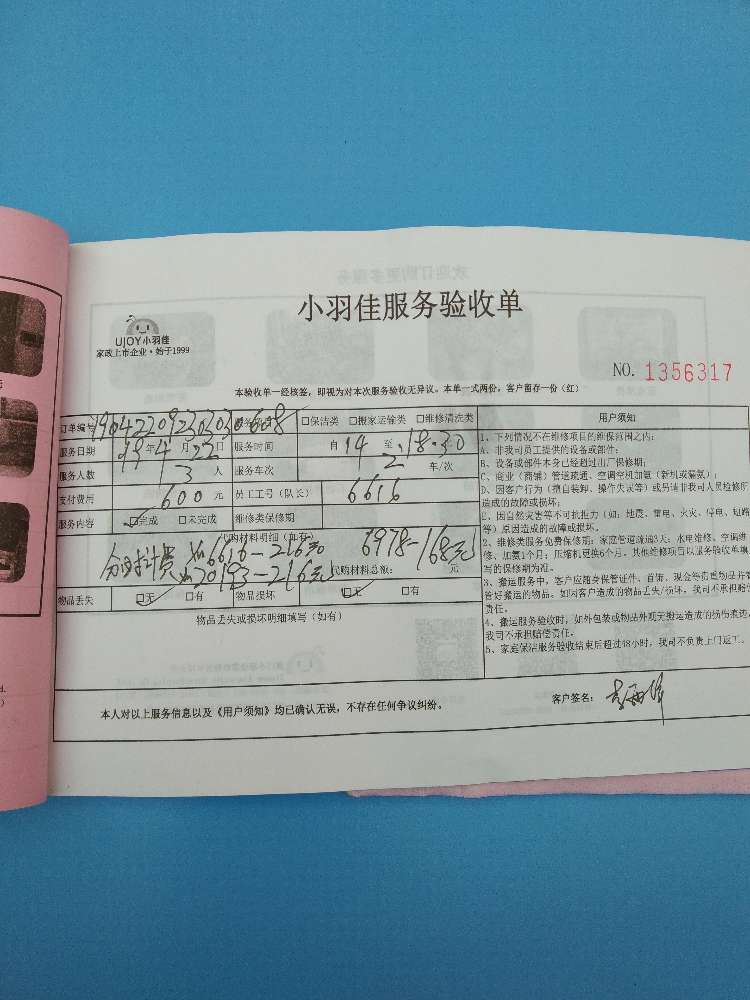 小羽佳服务验收单
UJOY小羽佳
家政上市企业·始于1999
NO. 1356317
本验收单一经核签,即视为对本次服务验收无异议。本单一式两份,客户留存一份(红)
订单编号 □保洁类 □搬家运输类 □维修清洗类 用户须知
服务日期 19年4月22日 服务时间 自14至18:30
服务人数 3人 服务车次 2车/次
支付费用 600元 员工工号(队长) 6616
服务内容 ☑完成 □未完成 维修类保修期
代购材料明细(如有)
6616-216元 6978-168元
20193-216元 代购材料总额: 元
物品丢失 ☑无 □有 物品损坏 ☑无 □有
物品丢失或损坏明细填写(如有)
1、下列情况不在维修项目的维保范围之内:
A、非我司员工提供的设备或部件;
B、设备或部件本身已经超过出厂保修期;
C、商业(商铺)管道疏通、空调空机加氨(新机或漏氨);
D、因客户行为(擅自装卸、操作失误等)或另请非我司人员检修所
造成的故障或损坏;
E、因自然灾害等不可抗推力(如:地震、雷电、火灾、停电、短路
等)原因造成的故障或损坏。
2、维修类服务免费保修期:家庭管道疏通3天;水电维修、空调维
修、加氨1个月;压缩机更换6个月。其他维修项目以服务验收单填
写的保修期为准。
3、搬运服务中,客户应随身保管证件、首饰、现金等贵重物品并看
管好搬运的物品。如因客户造成的物品丢失/损坏,我司不承担赔偿
责任。
4、搬运服务验收时,如外包装或物品外观无搬运造成的损伤痕迹,
我司不承担赔偿责任。
5、家庭保洁服务验收结束后超过48小时,我司不负责上门返工。
本人对以上服务信息以及《用户须知》均已确认无误,不存在任何争议纠纷。
客户签名: